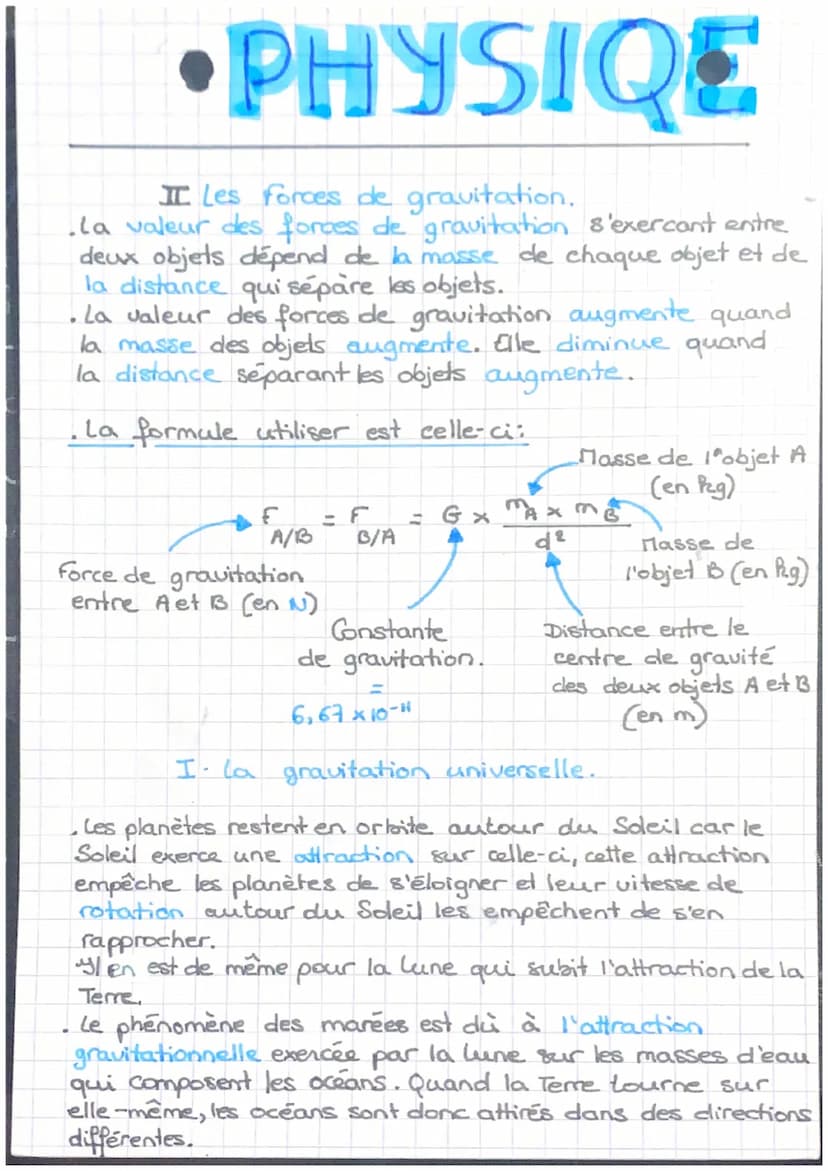 • PHYSIQE
II Les forces de gravitation.
. La valeur des forces de gravitation s'exercant entre
deux objets dépend de la masse de chaque objet et de
la distance qui sépàre les objets.
. La valeur des forces de gravitation augmente quand
la masse des objets augmente. Elle diminue quand
la distance séparant les objets augmente.
. La formule utiliser est celle-ci:
Masse de l'objet A
(en kg)
F A/B = F B/A = G × mA × mB
d²
Masse de
l'objet B (en kg)
Force de gravitation
entre A et B (en N)
Constante
de gravitation.
=
6,67 × 10⁻¹¹
Distance entre le
centre de gravité
des deux objets A et B
(en m)
I - La gravitation universelle.
. Les planètes restent en orbite autour du Soleil car le
Soleil exerce une attraction sur celle-ci, cette attraction
empêche les planètes de s'éloigner et leur vitesse de
rotation autour du Soleil les empêchent de s'en
rapprocher.
Il en est de même pour la lune qui subit l'attraction de la
Terre.
. Le phénomène des marées est dû à l'attraction
gravitationnelle exercée par la lune sur les masses d'eau
qui composent les océans. Quand la Terre tourne sur
elle-même, les océans sont donc attirés dans des directions
différentes.